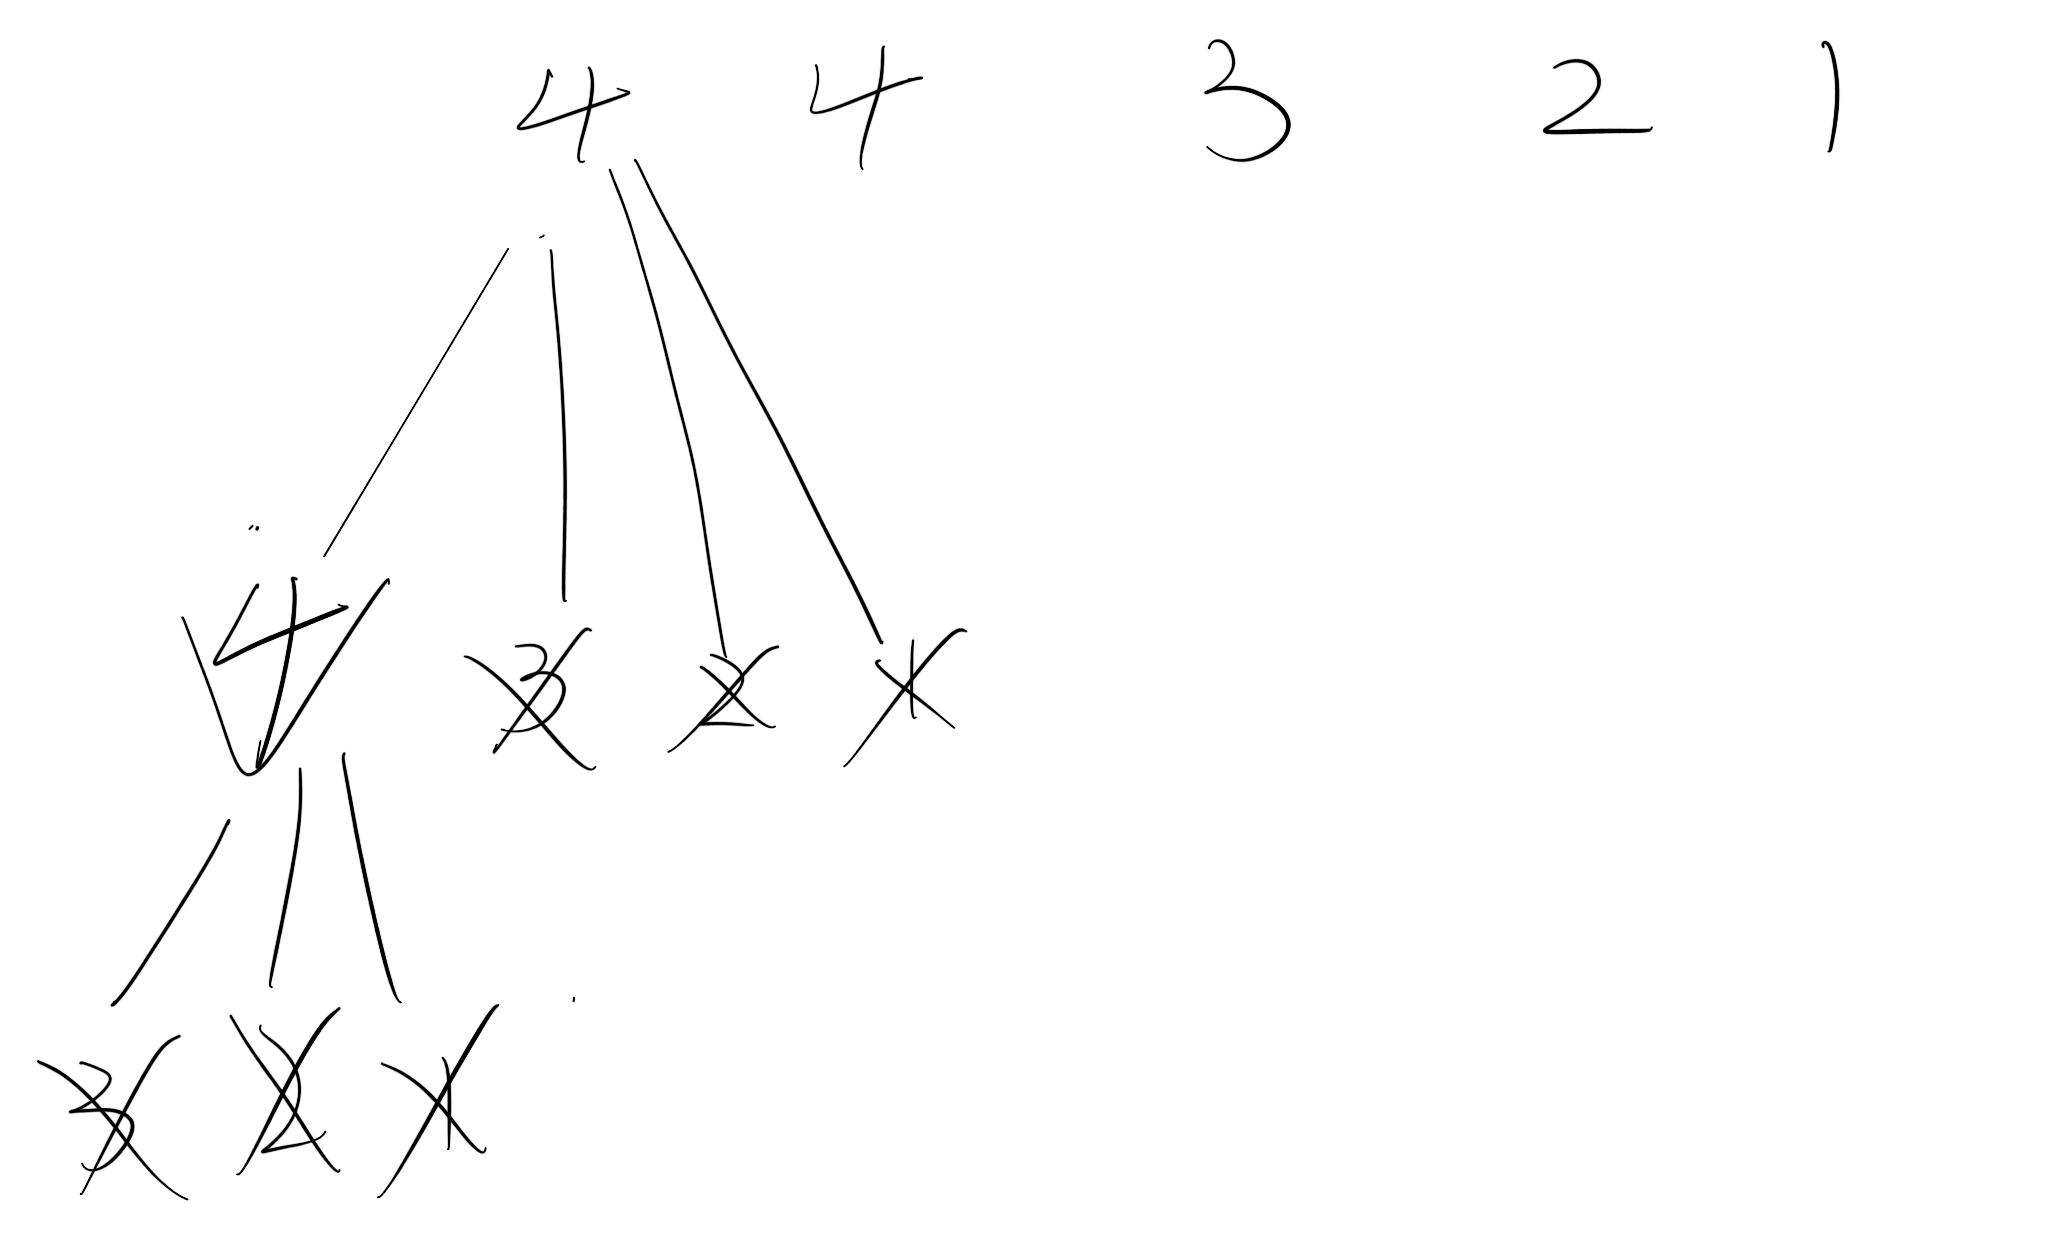 4 4 3 2 1
4 3 2 1
3 2 1